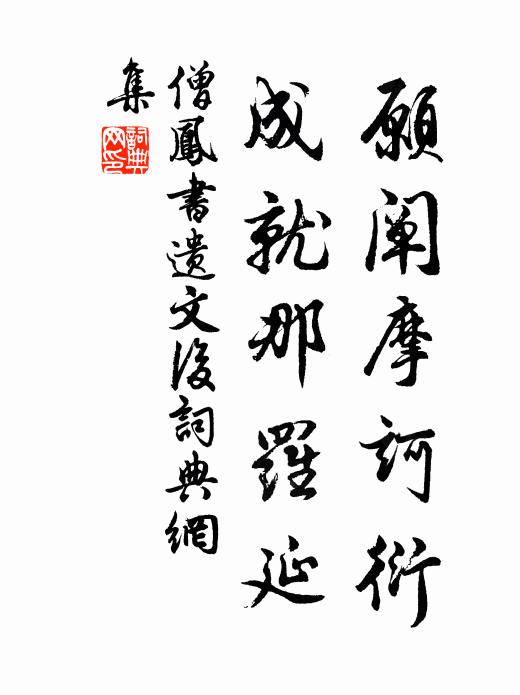 願阐摩訶衍
成就那羅延
僧鳳書遺文後詞典網
集
詞典網印